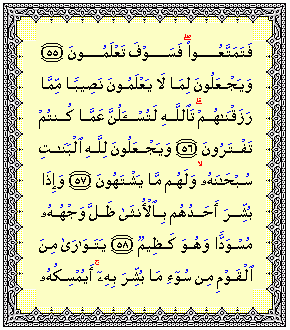 فَتَمَتَّعُوا۟ ۖ فَسَوْفَ تَعْلَمُونَ ﴿٥٥﴾
وَيَجْعَلُونَ لِمَا لَا يَعْلَمُونَ نَصِيبًا مِّمَّا
رَزَقْنَـٰهُمْ ۗ تَٱللَّهِ لَتُسْـَٔلُنَّ عَمَّا كُنتُمْ
تَفْتَرُونَ ﴿٥٦﴾ وَيَجْعَلُونَ لِلَّهِ ٱلْبَنَـٰتِ
سُبْحَـٰنَهُۥ ۙ وَلَهُم مَّا يَشْتَهُونَ ﴿٥٧﴾ وَإِذَا
بُشِّرَ أَحَدُهُم بِٱلْأُنثَىٰ ظَلَّ وَجْهُهُۥ
مُسْوَدًّا وَهُوَ كَظِيمٌ ﴿٥٨﴾ يَتَوَٰرَىٰ مِنَ
ٱلْقَوْمِ مِن سُوٓءِ مَا بُشِّرَ بِهِۦٓ ۚ أَيُمْسِكُهُۥ